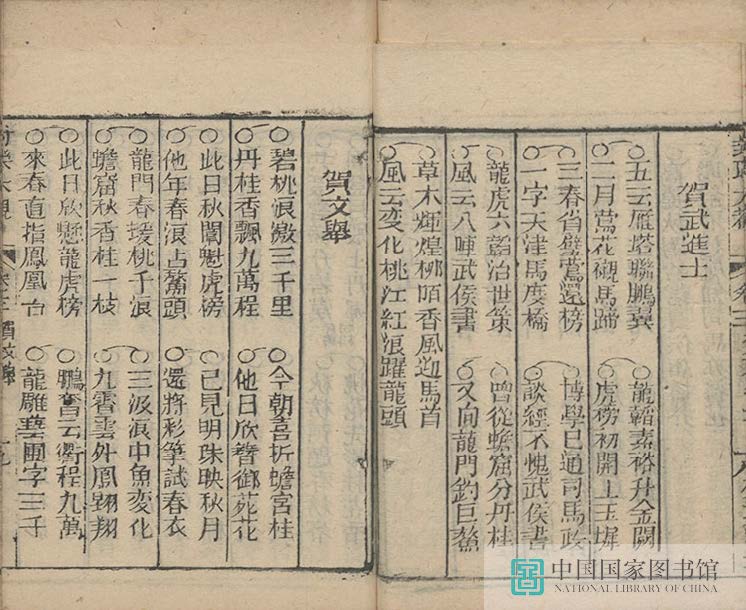 賀武進士
五云雁塔聯鵬翼 龍韜素裕升金闕
二月鶯花襯馬蹄 虎榜初開上玉墀
三春省 鶯遷榜 博學已通司馬政
一字天津馬度橋 談經不愧武侯書
龍虎六韜治世策 曾從蟾窟分丹桂
風云八陣武侯書 又向龍門釣巨鰲
草木輝煌柳陌香風迎馬首
風云変化桃江紅浪躍龍頭
賀文舉
碧桃浪激三千里 今朝喜折蟾宮桂
丹桂香飄九萬程 他日欣簪御苑花
此日秋闈魁虎榜 已見明珠映秋月
他年春浪占鰲頭 還將彩筆試春衣
龍門春援桃千浪 三汲浪中魚変化
蟾窟秋香桂一枝 九霄雲外鳳翱翔
此日欣懸龍虎榜 鵬奮云衢程九萬
來春直指鳳凰台 龍雕藝圃字三千
中国国家图书馆
NATIONAL LIBRARY OF CHINA